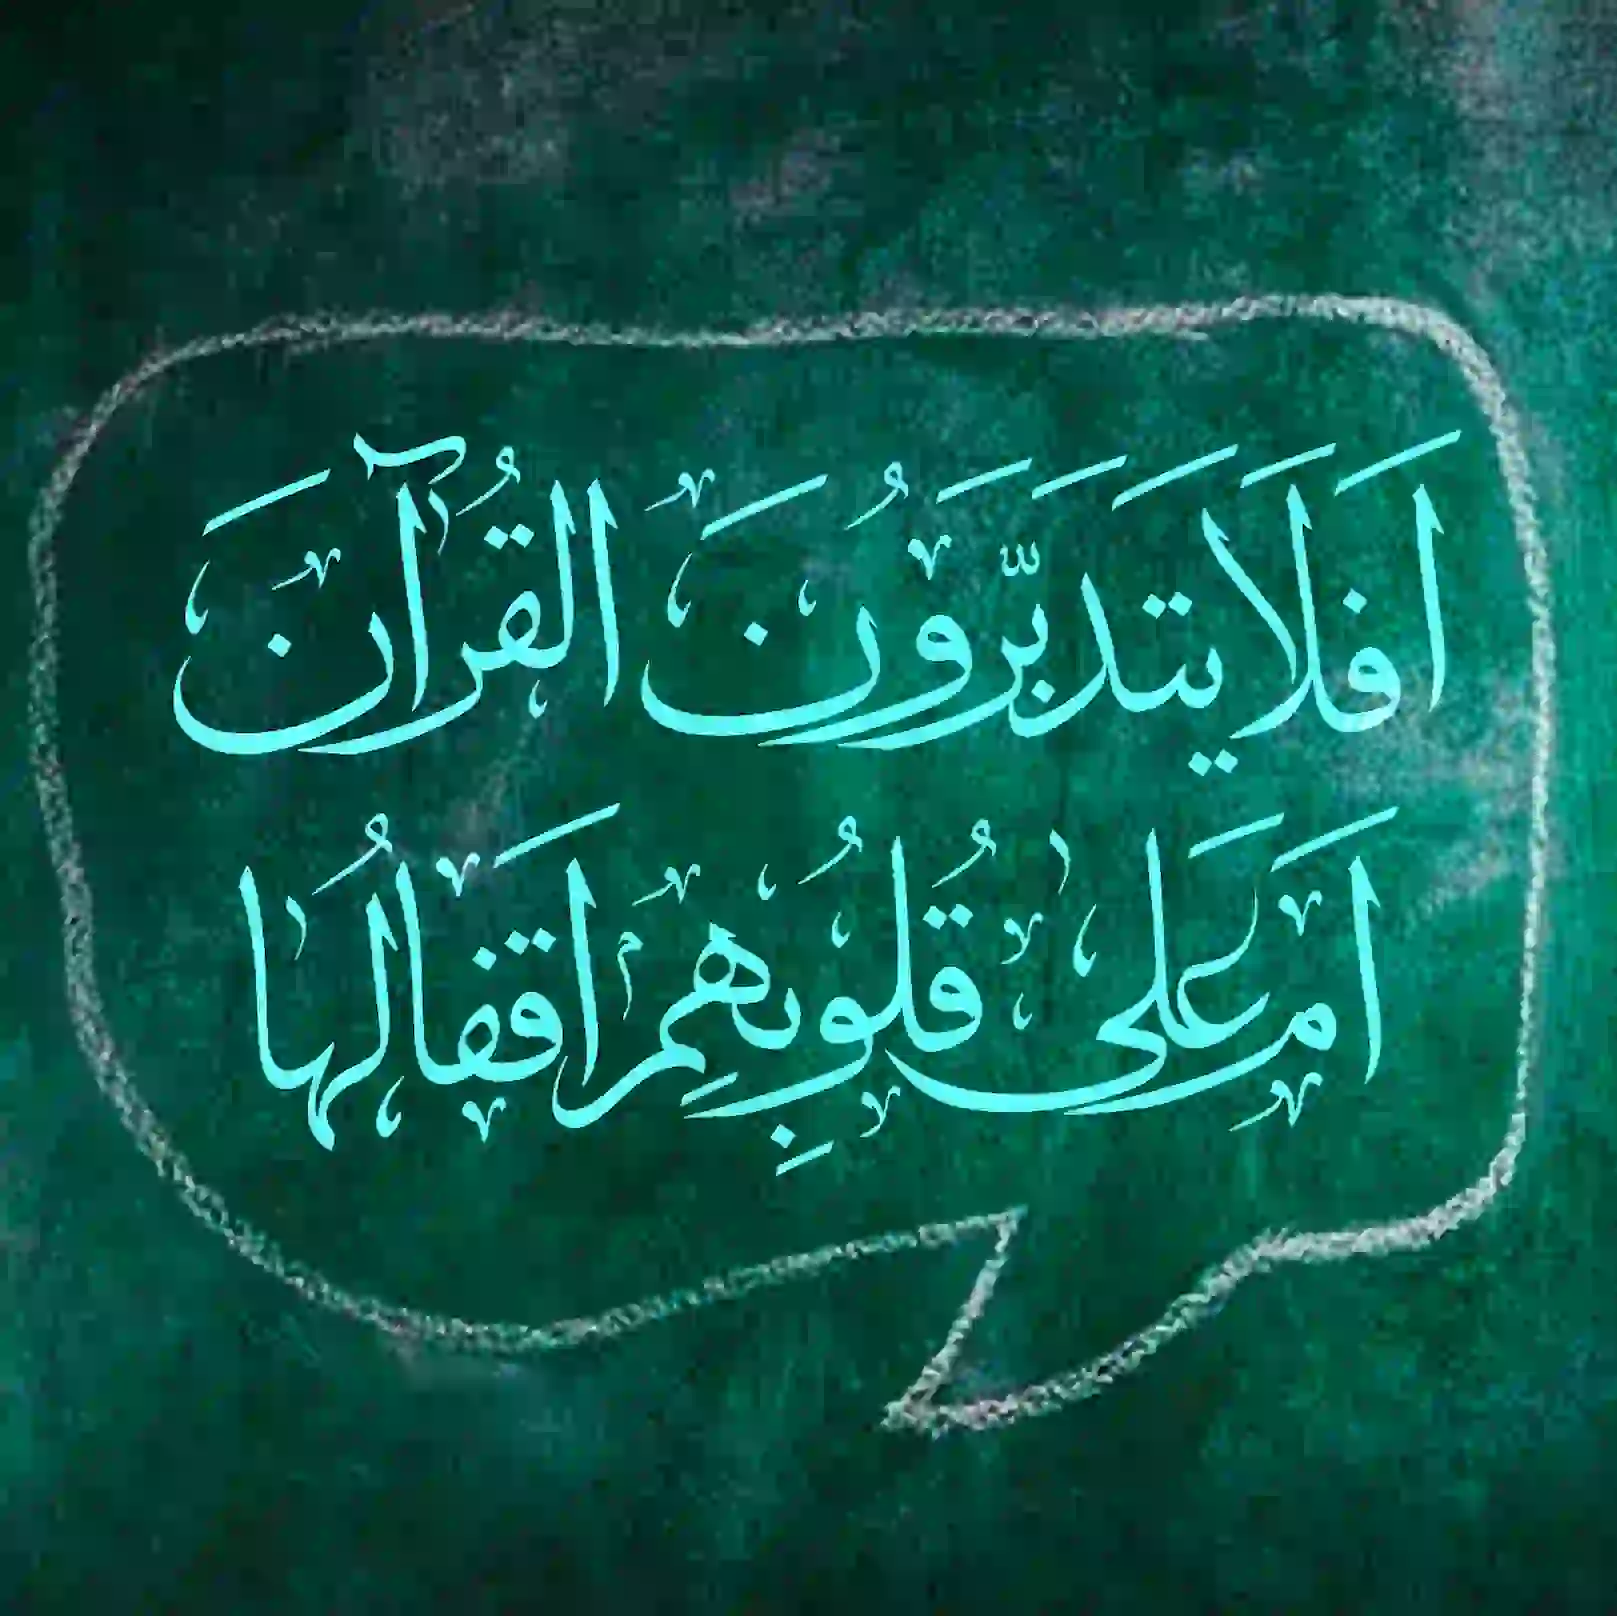 اَفَلا يَتَدَبَّرُونَ القُرآنَ
اَم عَلى قُلُوبِهِم اَقفالُها